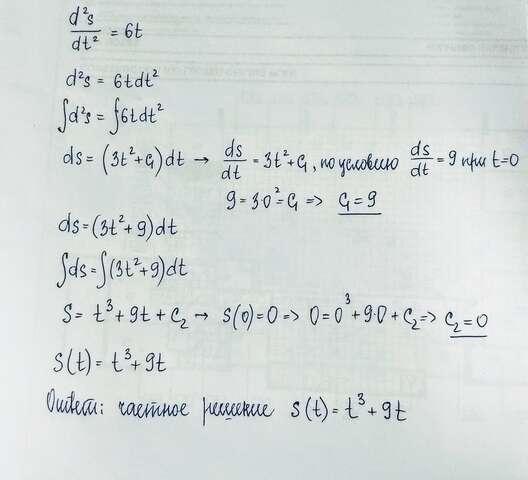 d²s/dt² = 6t
d²s = 6tdt²
∫d²s = ∫6tdt²
ds = (3t²+C₁)dt → ds/dt = 3t²+C₁, по условию ds/dt = 9 при t=0
9 = 3·0²-C₁ => C₁=9
ds=(3t²+9)dt
∫ds=∫(3t²+9)dt
S= t³+9t+C₂ → S(0)=0 => 0=0³+9·0+C₂=> C₂=0
S(t)=t³+9t
Ответ: частное решение S(t)=t³+9t